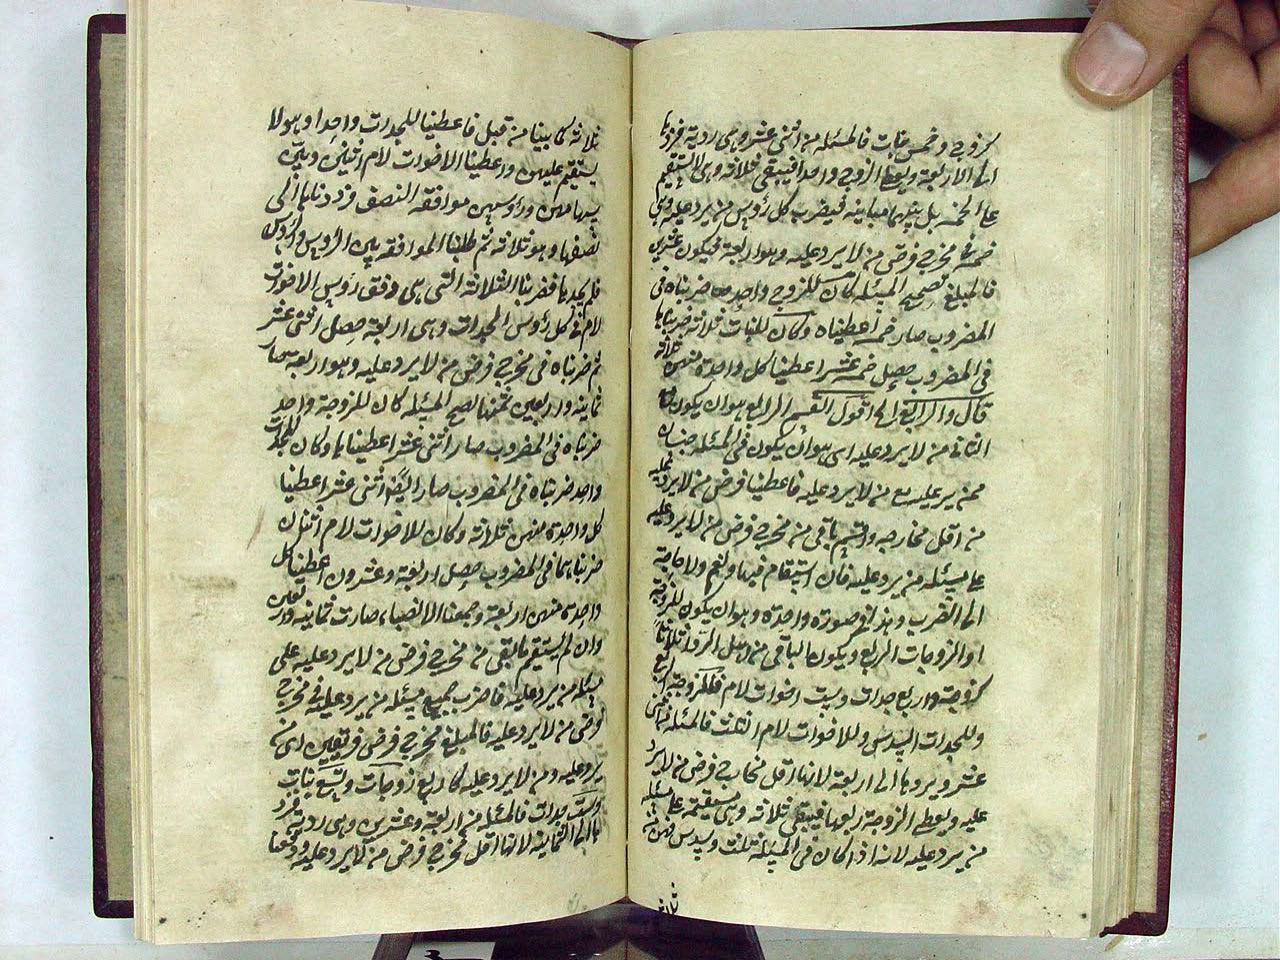 كزوج وخمس بنات فالمسئلة من اثنى عشر وهى ردية فردها
الى الاربعة ويعطى الزوج واحدا فيبقى ثلاثة وهى لا تستقيم
على الخمسة بل بينهما مباينة فيضرب كل رؤس من يرد عليه وهى
خمسة فى مخرج فرض من لا يرد عليه وهو اربعة فيكون عشرين
فالمبلغ تصحيح المسئلة كان للزوج واحد ضربناه فى
المضروب صار خمسة اعطيناه وكان للبنات ثلاثة ضربناها
فى المضروب حصل خمسة عشر اعطينا كل واحدة منهن ثلاثة
قال والرابع الى اقول القسم الرابع هو ان يكون مع
الثانى من لا يرد عليه اى هو ان يكون فى المسئلة جنسان
ممن يرد عليه مع من لا يرد عليه فاعطينا فرض من لا يرد عليه
من اقل مخارجه واقسم باقى من مخرج فرض من لا يرد عليه
على مسئلة من يرد عليه فان استقام فبها ونعم ولا حاجة
الى الضرب وهذا فى صورة واحدة وهو ان يكون للزوجة
او الزوجات الربع ويكون الباقى من اهل الرد اثلاثا
كزوجة واربع جدات وست اخوات لام فللزوجة الربع
وللجدات السدس وللاخوات لام الثلث فالمسئلة من اثنى
عشر ويردها الى اربعة لانها اقل مخارج فرض من لا يرد
عليه ويعطى الزوجة ربعها فيبقى ثلاثة وهى مستقيمة على مسئلة
من يرد عليه لانه اذا كان فى المسئلة ثلث وسدس فهى من
ثلاثة
ثلاثة كما بينا من قبل فاعطينا للجدات واحدا وهو لا
يستقيم عليهن واعطينا الاخوات لام اثنين وبين
سهامهن ورؤسهن موافقة النصف فرددناها الى
نصفها وهو ثلاثة ثم طلبنا الموافقة بين الرؤس والرؤس
فلم نجدها فضربنا الثلاثة التى هى وفق رؤس الاخوات
لام فى كل رؤس الجدات وهى اربعة حصل اثنى عشر
ثم ضربناه فى مخرج فرض من لا يرد عليه وهو اربعة صار
ثمانية واربعين فمنها تصح المسئلة كان للزوجة واحد
ضربناه فى المضروب صار اثنى عشر اعطيناها وكان للجدات
واحد ضربناه فى المضروب صار ايضا اثنى عشر اعطينا
كل واحدة منهن ثلاثة وكان للاخوات لام اثنان
ضربناهما فى المضروب حصل اربعة وعشرون اعطينا كل
واحدة منهن اربعة وجمعنا الانصباء صارت ثمانية واربعين
وان لم يستقم ما بقى من مخرج فرض من لا يرد عليه على
مسئلة من يرد عليه فاضرب جميع مسئلة من يرد عليه فى مخرج
فرض من لا يرد عليه فالمبلغ مخرج فرض فريقين اى من
يرد عليه ومن لا يرد عليه كاربع زوجات وتسع بنات
وست جدات فالمسئلة من اربعة وعشرين وهى ردية فردها
الى الثمانية لانها اقل مخرج فرض من لا يرد عليه